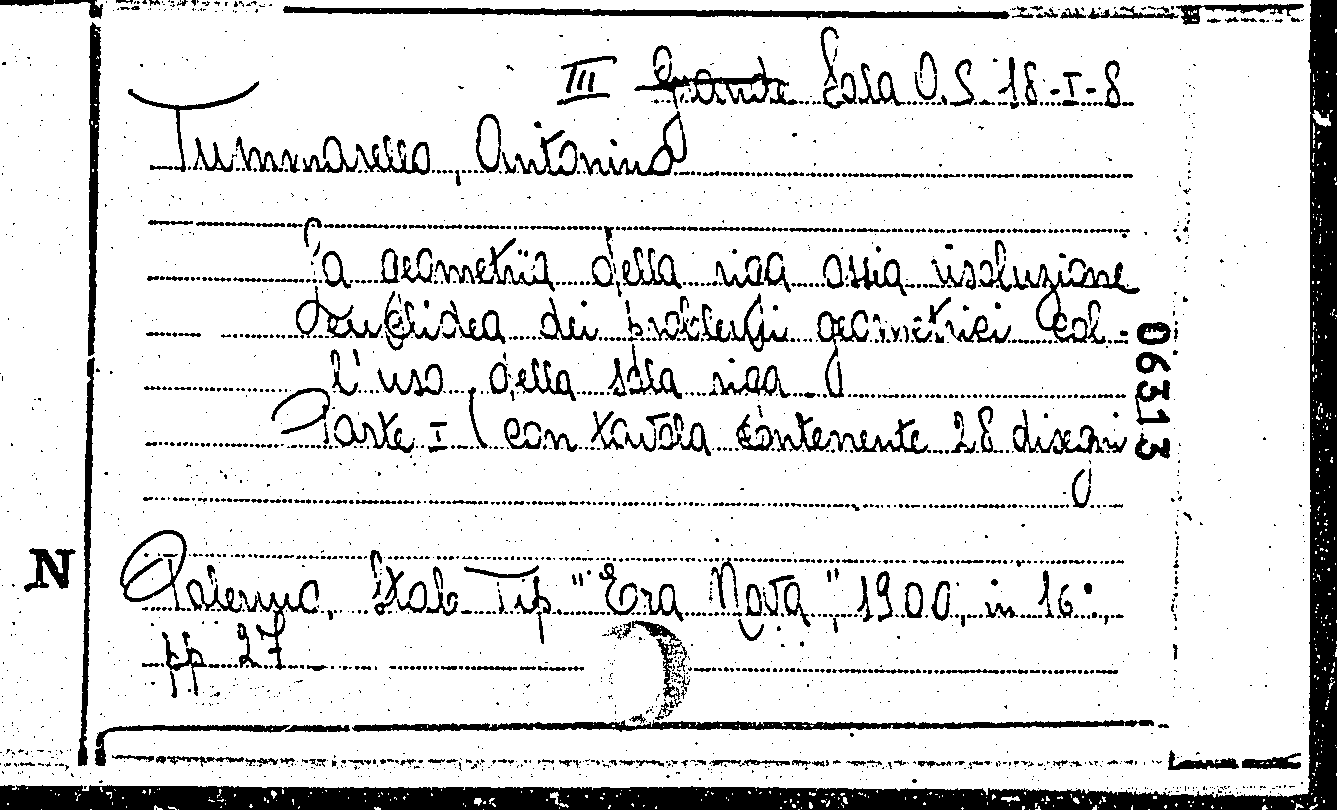 III Grande Sala O.S. 18-I-8
Tummarello, Antonino
La geometria della riga ossia risoluzione
euclidea dei problemi geometrici col-
l'uso della sola riga.
Parte I (con tavola contenente 28 disegni
06313
N
Palermo, Stab. Tip. "Era Nova", 1900, in 16°,
pp 27